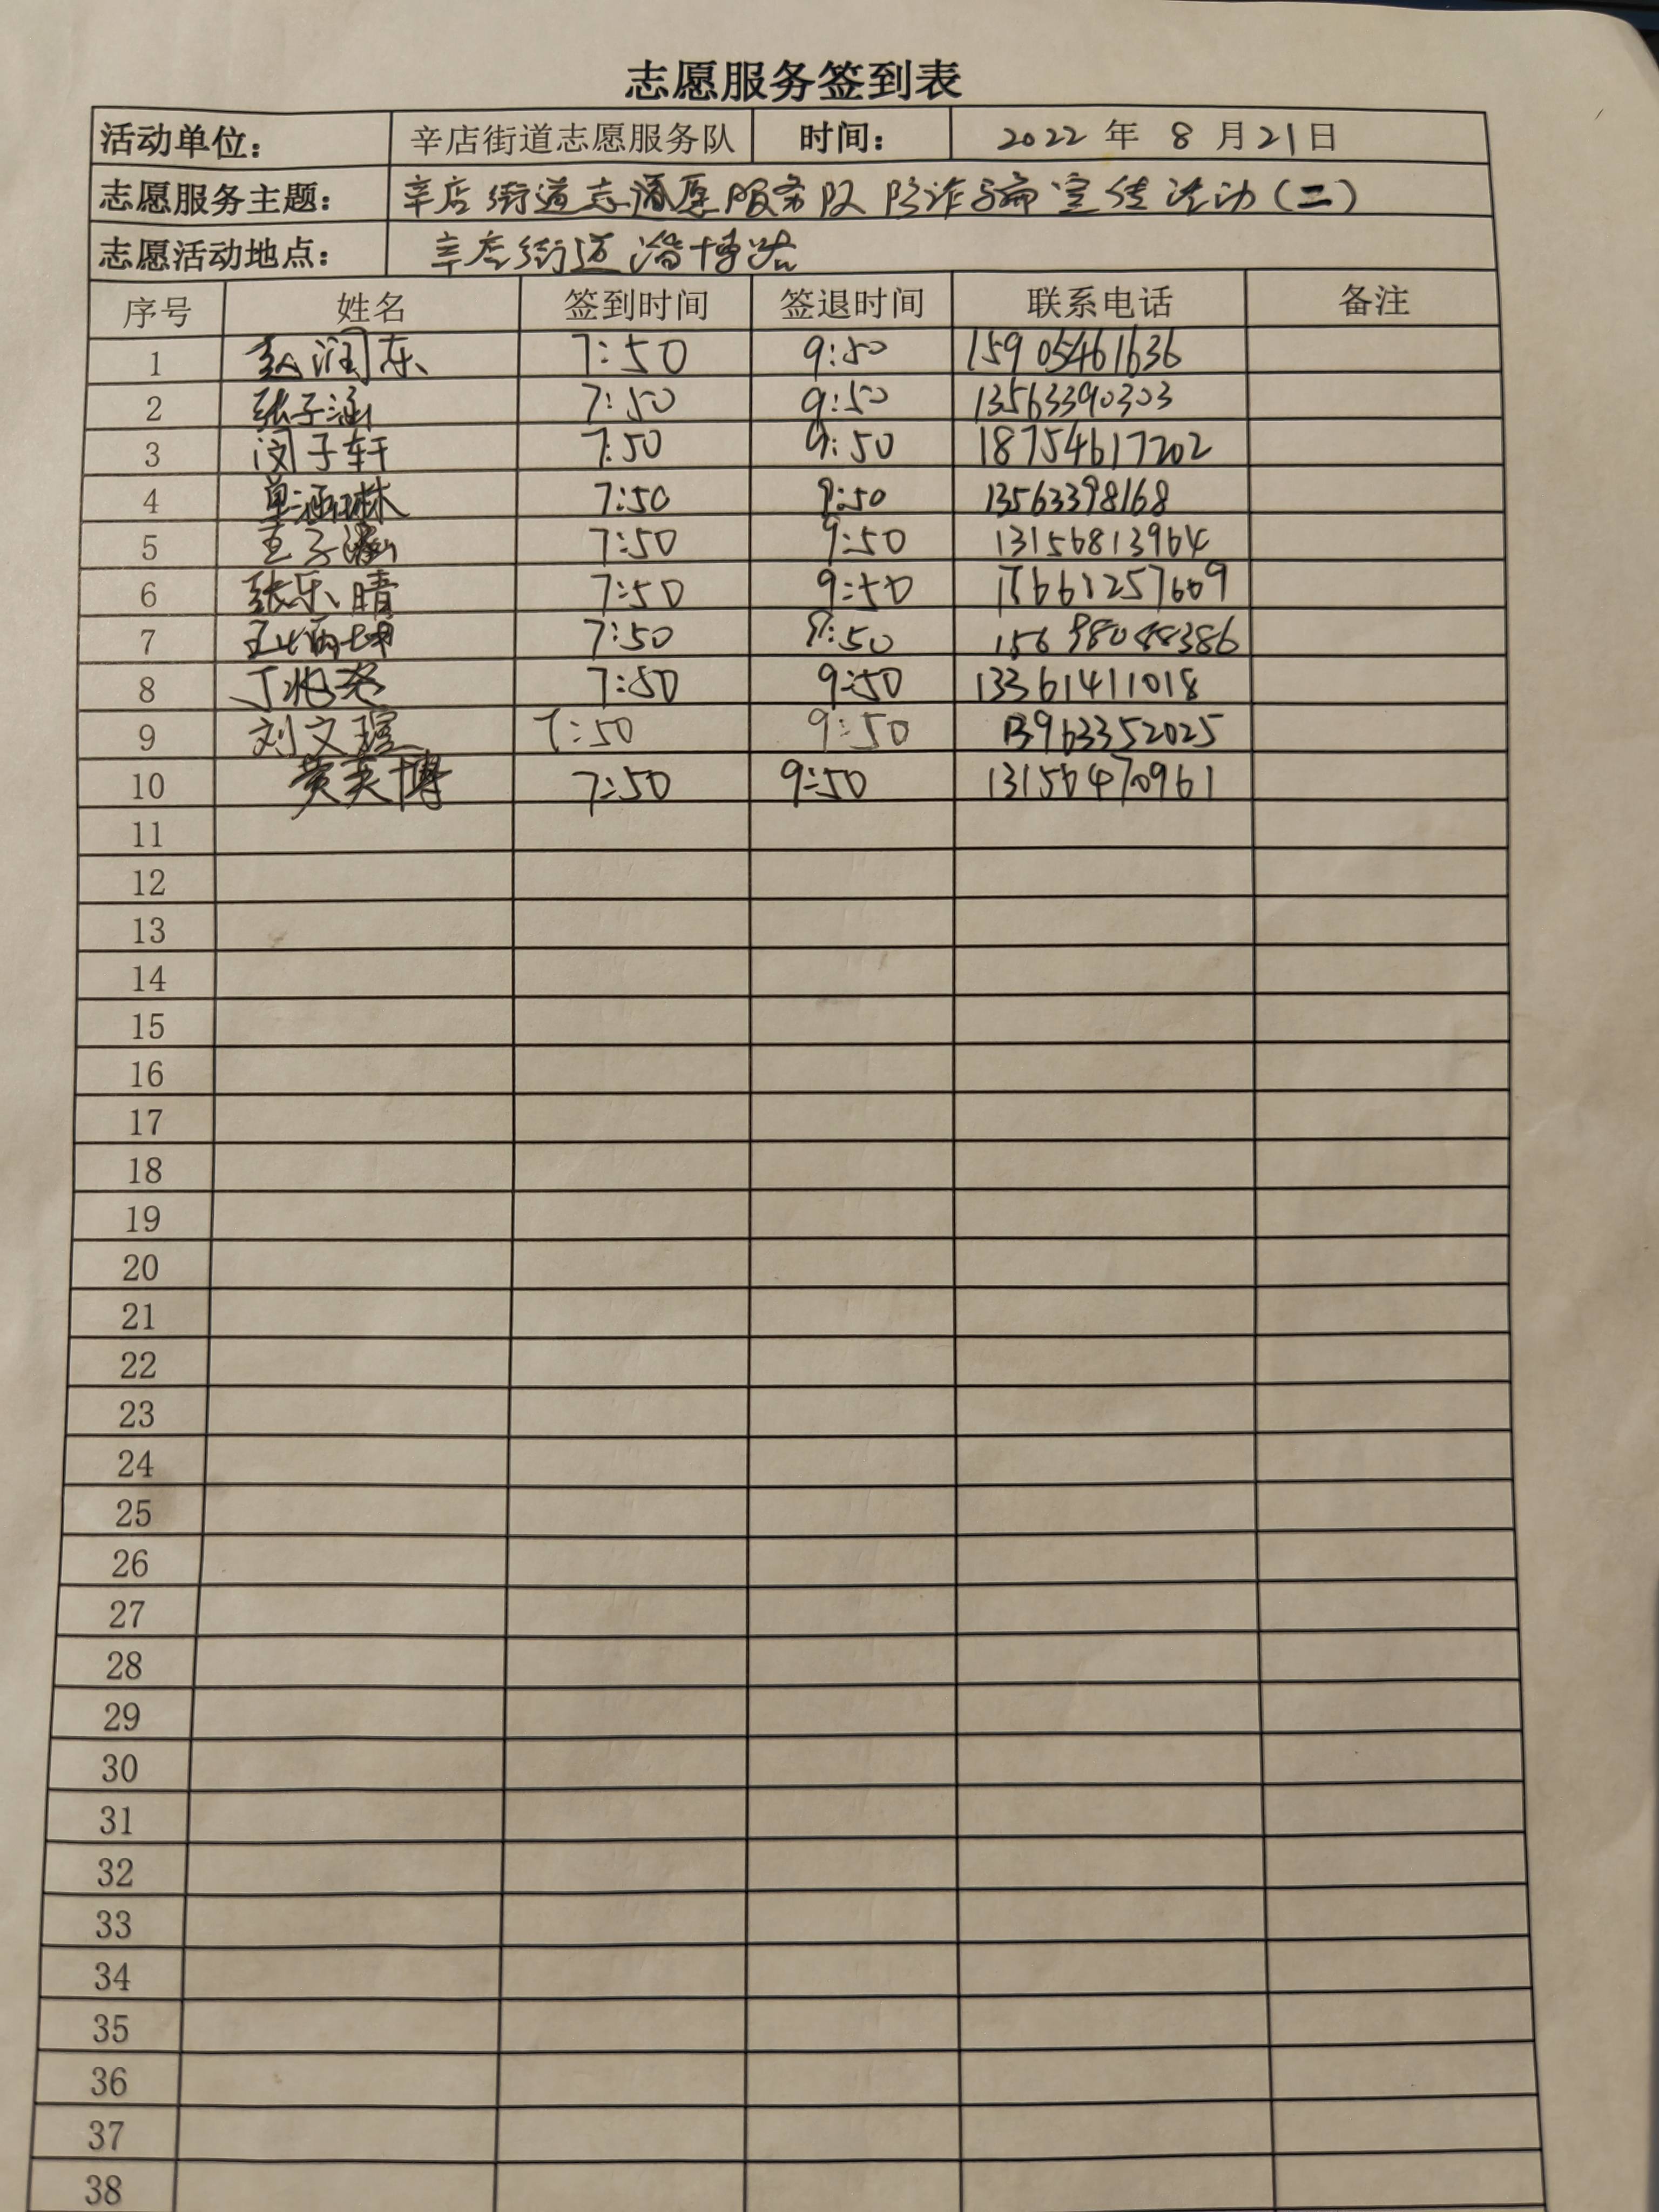 志愿服务签到表
活动单位: 辛店街道志愿服务队 时间: 2022 年 8 月 21 日
志愿服务主题: 辛店街道志愿服务队防诈骗宣传活动(二)
志愿活动地点: 辛店街道淄博路
序号 姓名 签到时间 签退时间 联系电话 备注
1 赵润东 7:50 9:50 15905461636
2 张子涵 7:50 9:50 13563390303
3 闵子轩 7:50 9:50 18754617202
4 单涵琳 7:50 9:50 13563398168
5 王子 7:50 9:50 13156813964
6 张乐晴 7:50 9:50 17661257609
7 7:50 9:50 15698048386
8 丁兆尧 7:50 9:50 13361411018
9 刘文瑄 7:50 9:50 13963352025
10 黄英博 7:50 9:50 13156470961
11
12
13
14
15
16
17
18
19
20
21
22
23
24
25
26
27
28
29
30
31
32
33
34
35
36
37
38